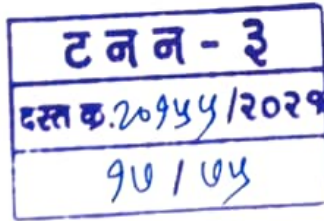 ट न न - ३
दस्त क्र.२०१५५/२०२१
१७ / ७५